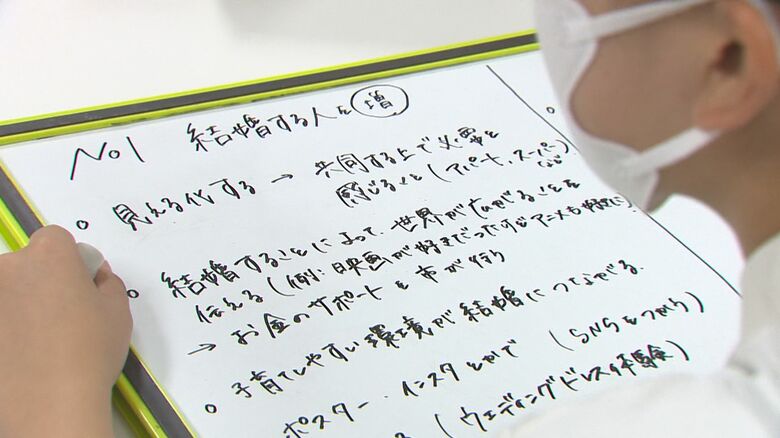 No1 結婚する人を増
。見える代する → 共同する上で必要と
感じること（アパート、スーパー）
など
。結婚することによって、世界が広がることを
伝える（例：映画が好きだったけどアニメも好きに）
→ お金のサポートを市が行う
。子育てしやすい環境が結婚につながる。
ポスター、インスタとかで （SNSをつかう）
（ウェディングドレス体験）